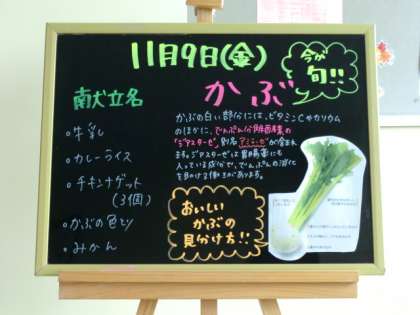 11月9日(金)
今が
旬!!
かぶ
献立名
・牛乳
・カレーライス
・チキンナゲット
(3個)
・かぶの色どり
・みかん
かぶの白い部分には、ビタミンCやカリウム
のほかに、でんぷん分解酵素の
"ジアスターゼ"別名アミラーゼが含まれ
ます。ジアスターゼは胃腸薬にも
入っている成分で、でんぷんの消化
を助ける働きがあります。
おいしい
かぶの
見分け方!!